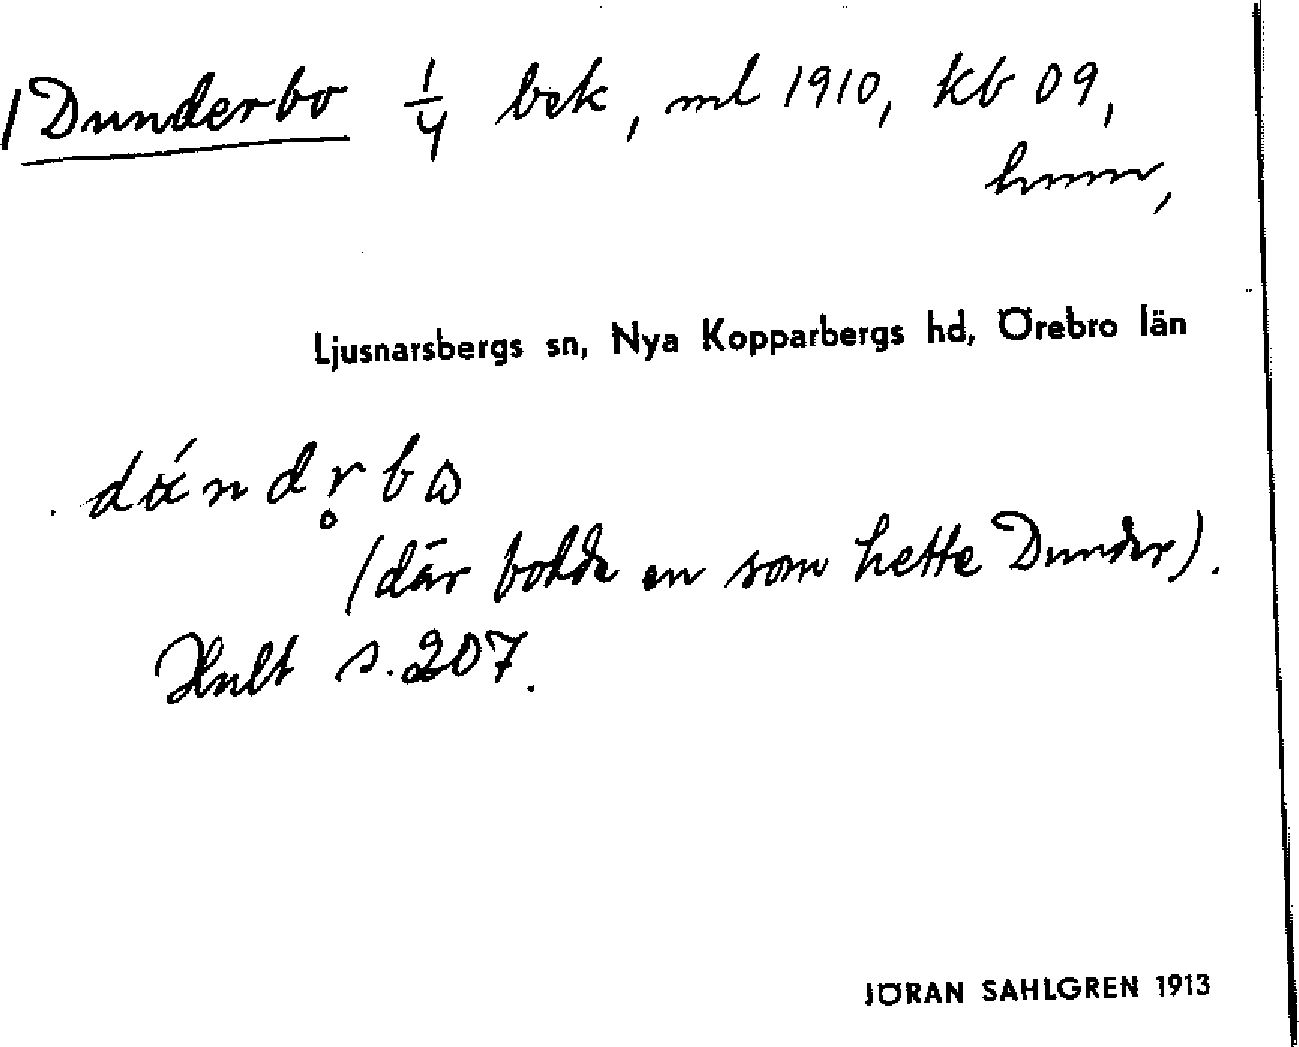 Dunderbo 1/4 bek, ml 1910, kb 09,
hmm,
Ljusnarsbergs sn, Nya Kopparbergs hd, Örebro län
(där bodde en som hette Dunder).
Hult s. 207.
JÖRAN SAHLGREN 1913